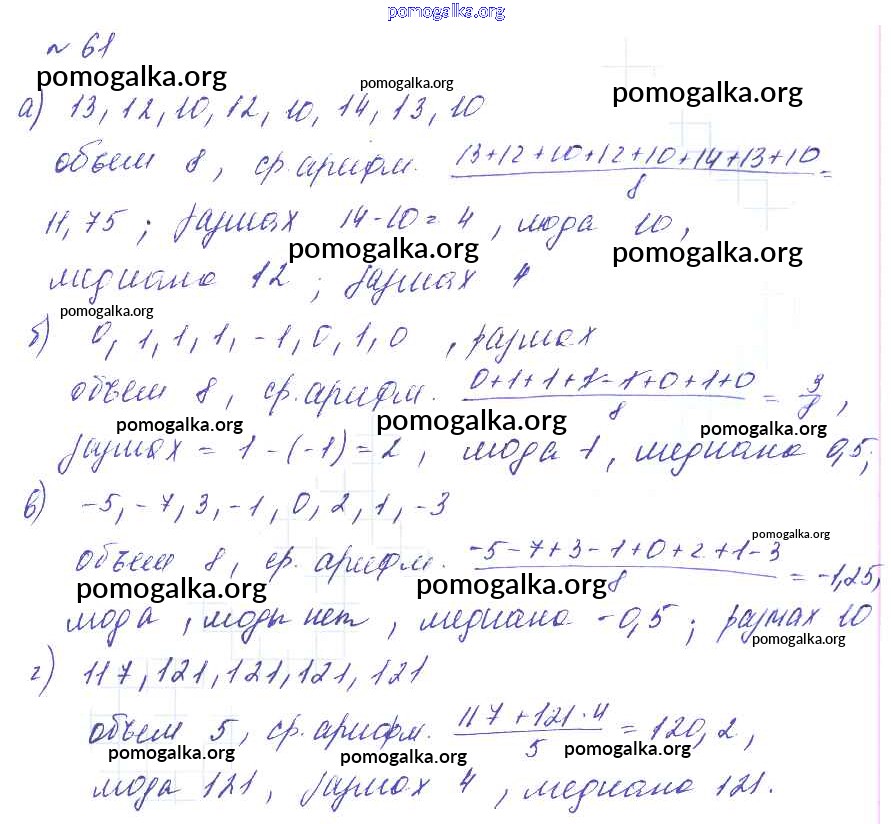 pomogalka.org
№ 61
pomogalka.org pomogalka.org pomogalka.org
а) 13, 12, 10, 12, 10, 14, 13, 10
объем 8, ср. арифм. (13+12+10+12+10+14+13+10)/8 =
11,75; размах 14-10=4, мода 10,
pomogalka.org pomogalka.org
медиана 12; размах 4
pomogalka.org
б) 0, 1, 1, 1, -1, 0, 1, 0, размах
объем 8, ср. арифм. (0+1+1+1-1+0+1+0)/8 = 3/8,
pomogalka.org pomogalka.org pomogalka.org
размах = 1-(-1)=2, мода 1, медиана 0,5;
в) -5, -7, 3, -1, 0, 2, 1, -3
pomogalka.org
объем 8, ср. арифм. (-5-7+3-1+0+2+1-3)/8 = -1,25,
pomogalka.org pomogalka.org
мода, моды нет, медиана -0,5; размах 10
pomogalka.org
г) 117, 121, 121, 121, 121
объем 5, ср. арифм. (117+121·4)/5 = 120,2,
pomogalka.org pomogalka.org pomogalka.org
мода 121, размах 4, медиана 121.